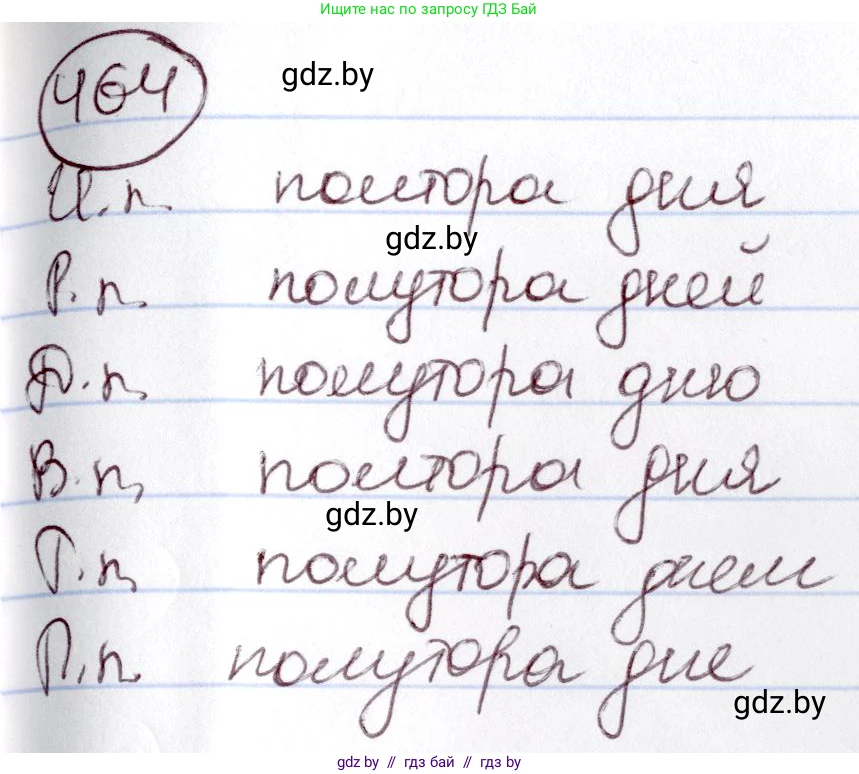 Ищите нас по запросу ГДЗ Бай
464
gdz.by
И.п. полтора дня
gdz.by
Р.п. полутора дней
Д.п. полутора дню
В.п. полтора дня
gdz.by
Т.п. полутора днем
П.п. полутора дне
gdz.by
gdz.by // гдз бай // гдз by